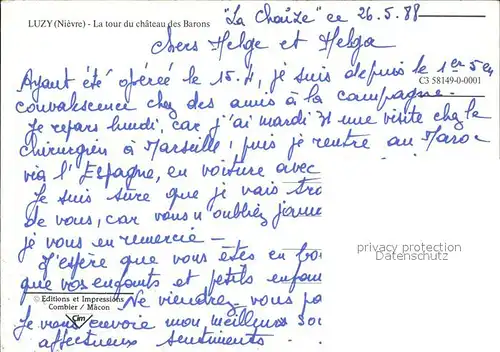 LUZY (Nièvre) - La tour du château des Barons
"La Chaize" ce 26.5.88
Chers Helge et Helga
C3 58149-0-0001
Ayant été opérée le 15.4, je suis depuis le 1er 5 en
convalescence chez des amis à la campagne.
Je repars lundi, car j'ai mardi 31 une visite chez le
chirurgien à Marseille; puis je rentre au Maroc
via l'Espagne, en voiture avec
Je suis sûre que je vais
de vous, car vous n'oubliez
je vous en remercie -
privacy protection
Datenschutz
J'espère que vous êtes en
que vos enfants et petits
© Editions et Impressions
Combier / Mâcon
Cim
Ne viendrez-vous
Je vous envoie mon meilleur
affectueux sentiments